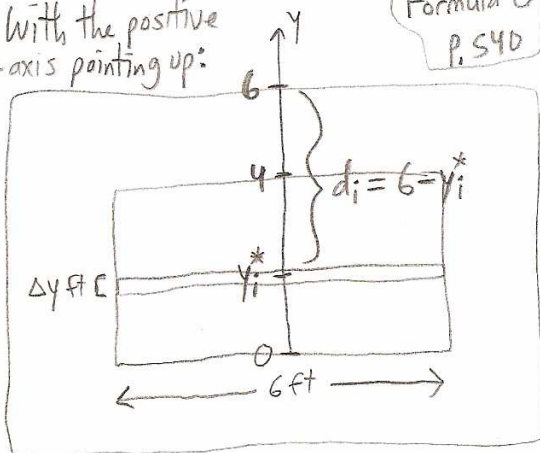 With the positive
-axis pointing up:
Formula
P. 540
Y
6
4
dᵢ = 6-yᵢ*
yᵢ*
Δy ft [
0
6 ft